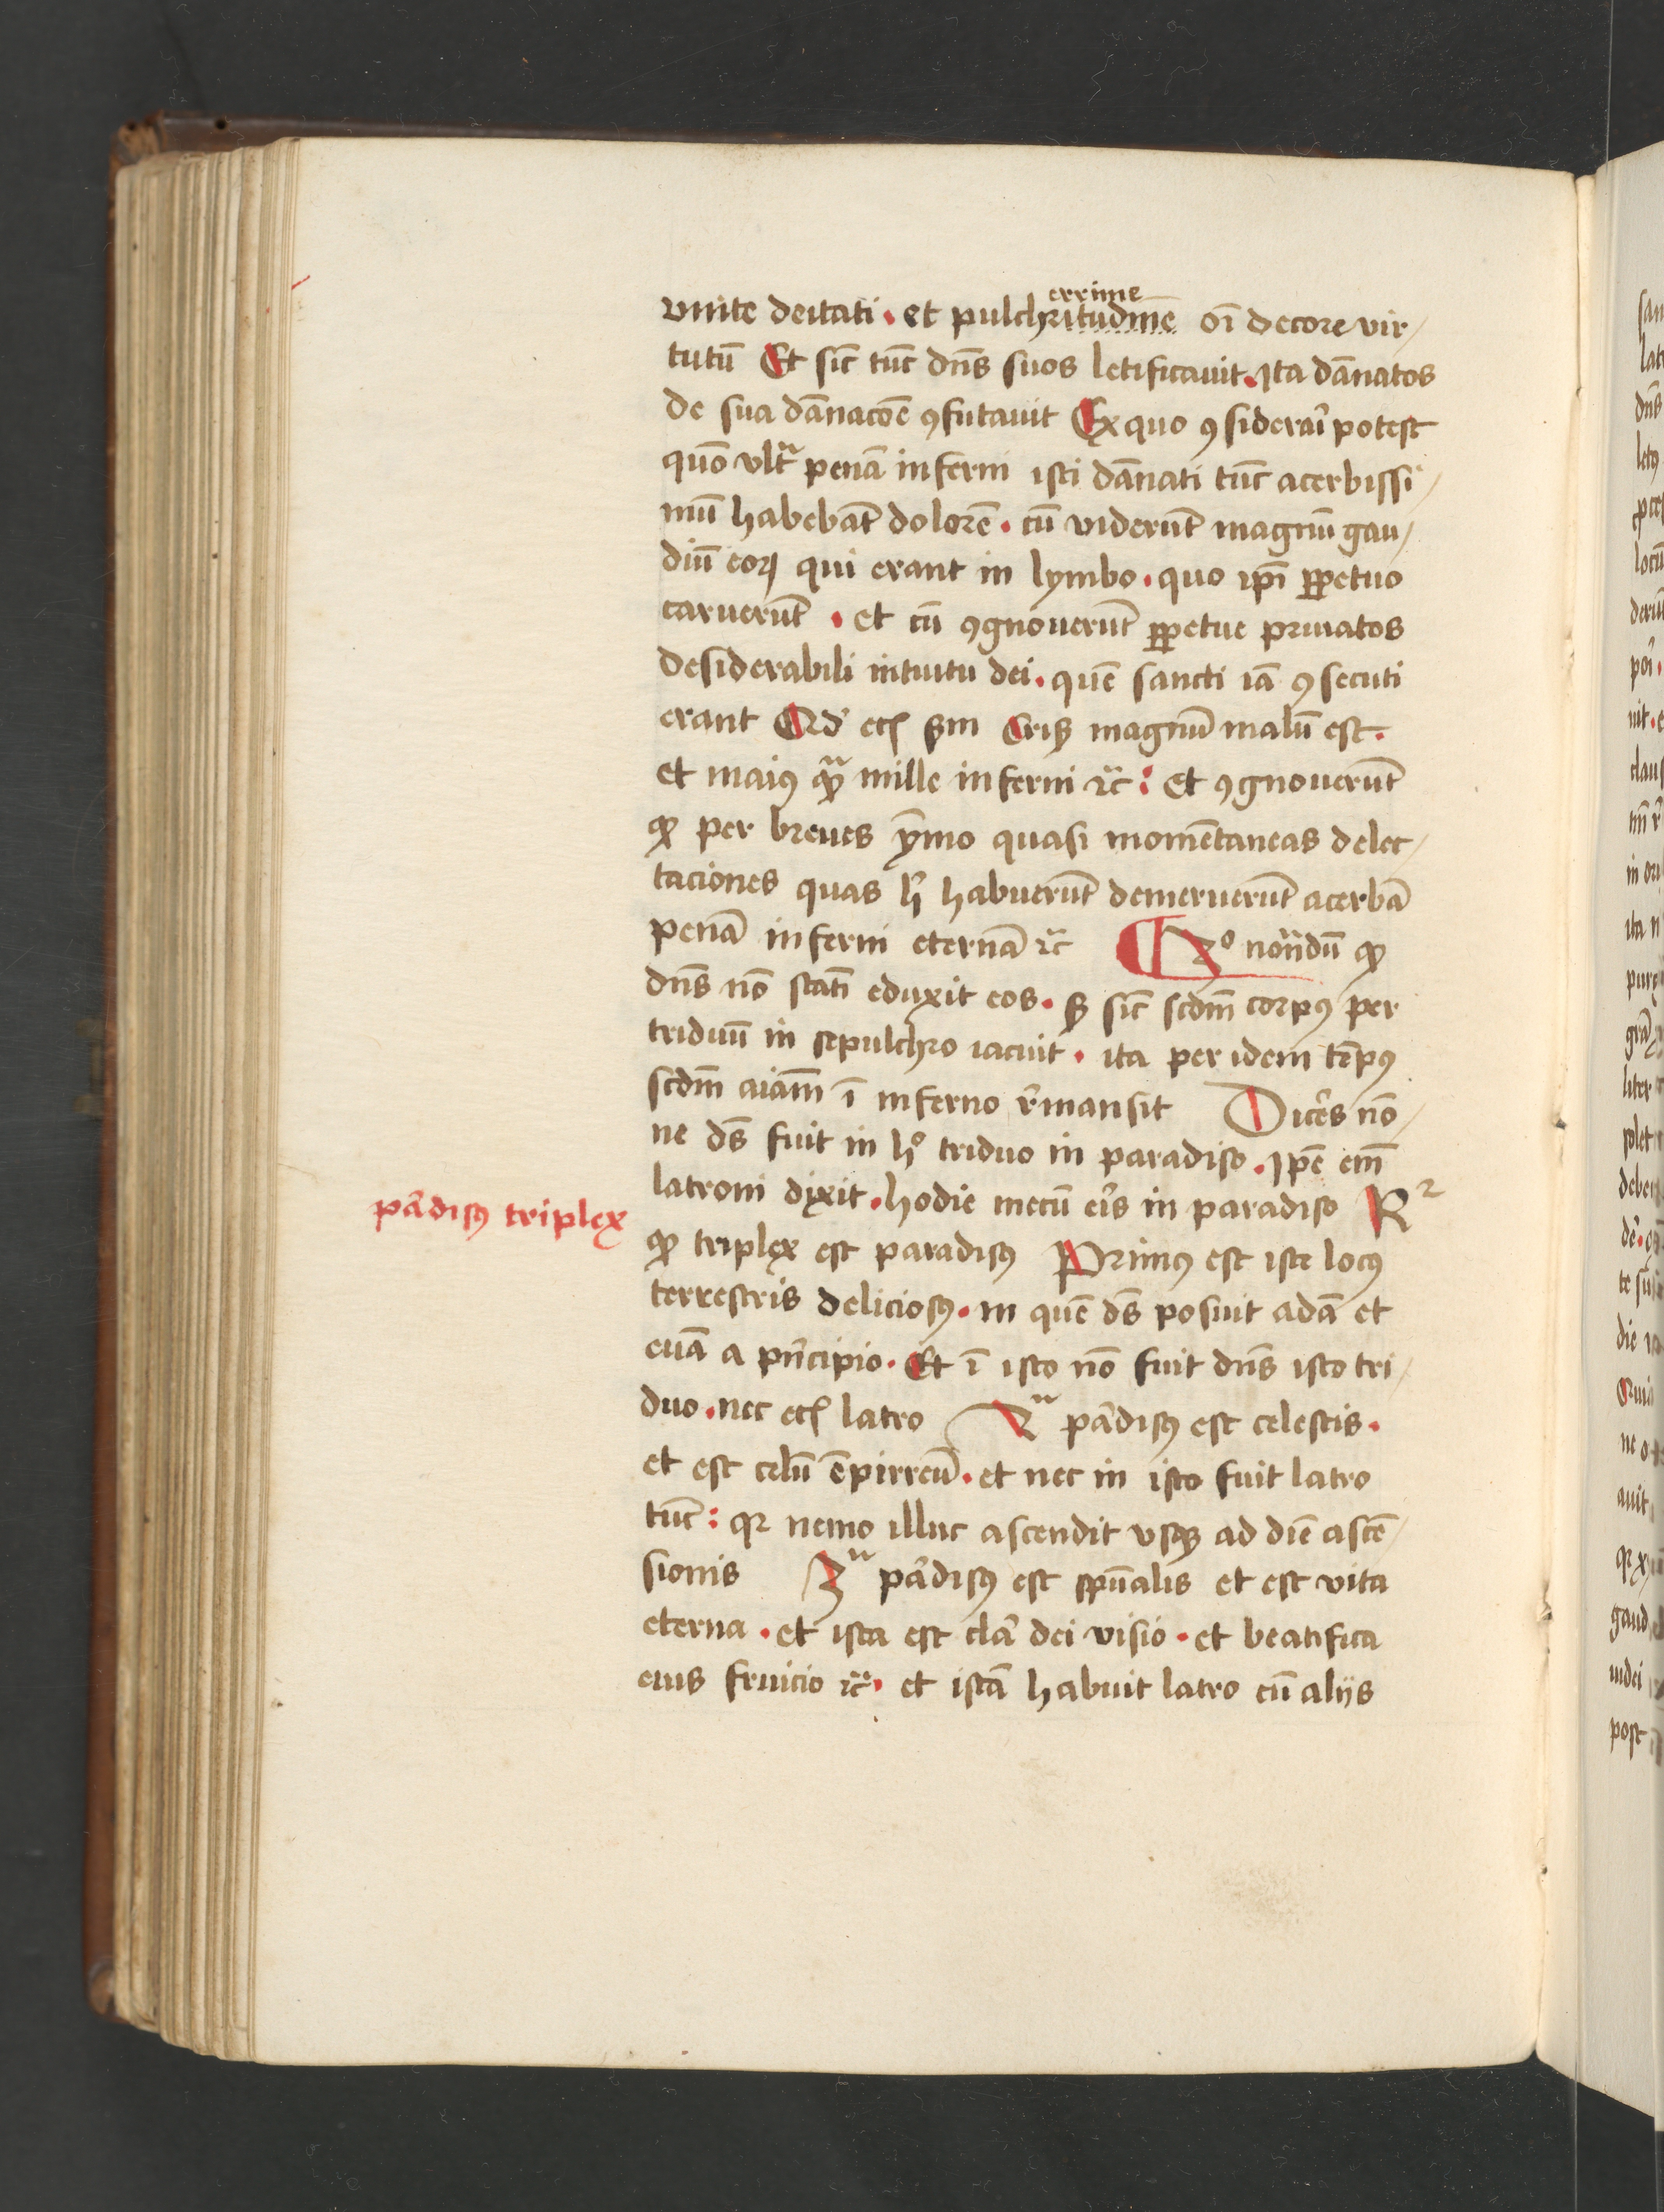 vnite deitati · et pulchritudinē errime oī decore vir/
tutū Et sic̄ tūc dn̄s suos letificauit. Ita dānatos
de sua dānacōe ꝯfutauit Ex quo ꝯsiderāi potest
quō vlt̄ penā inferni isti dānati tūc acerbissi/
mū habebāt dolorē · cū viderūt magnū gau/
diū eoꝝ qui erant in lymbo · quo ip̄i ꝑpetuo
caruerūt · et cū ꝯgnouerūt ꝑpetue priuatos
desiderabili intuitu dei · quē sancti iā ꝯsecuti
erant Qd' eciā s̄m Criꝫ magnū malū est ·
et maiꝰ qͣꝫ mille inferni ⁊c̄ : Et ꝯgnouerūt
ꝙ per breues ȳmo quasi momētaneas delec/
taciones quas h̄ habuerūt demeruerūt acerbā
penā inferni eternā ⁊c̄ ¶ 3º notādū ꝙ
dn̄s nō statī eduxit eos · sꝫ sic̄ scdm̄ corpꝰ per
triduū in sepulchro iacuit · ita per idem tēpꝰ
scdm̄ aīam ī inferno r̄mansit Dicēs nō/
ne ds̄ fuit in hº triduo in paradiso · Ip̄e em̄
latroni dixit · hodie mecū eīs in paradiso R²
ꝙ triplex est paradisꝰ Primꝰ est iste locꝰ
terrestris deliciosꝰ · in quē ds̄ posuit adā et
euā a pn̄cipio · Et ī isto nō fuit dn̄s isto tri/
duo · nec eciā latro 2ᵘˢ pādisꝰ est celestis ·
et est celū ēpirreū · et nec in isto fuit latro
tūc : qꝛ nemo illuc ascendit vsqꝫ ad diē ascē/
sionis 3ᵘˢ pādisꝰ est spūalis et est vita
eterna · et ista est clā dei visio · et beatifica
eius fruicio ⁊c̄ · et istā habuit latro cū alijs
pādisꝰ triplex